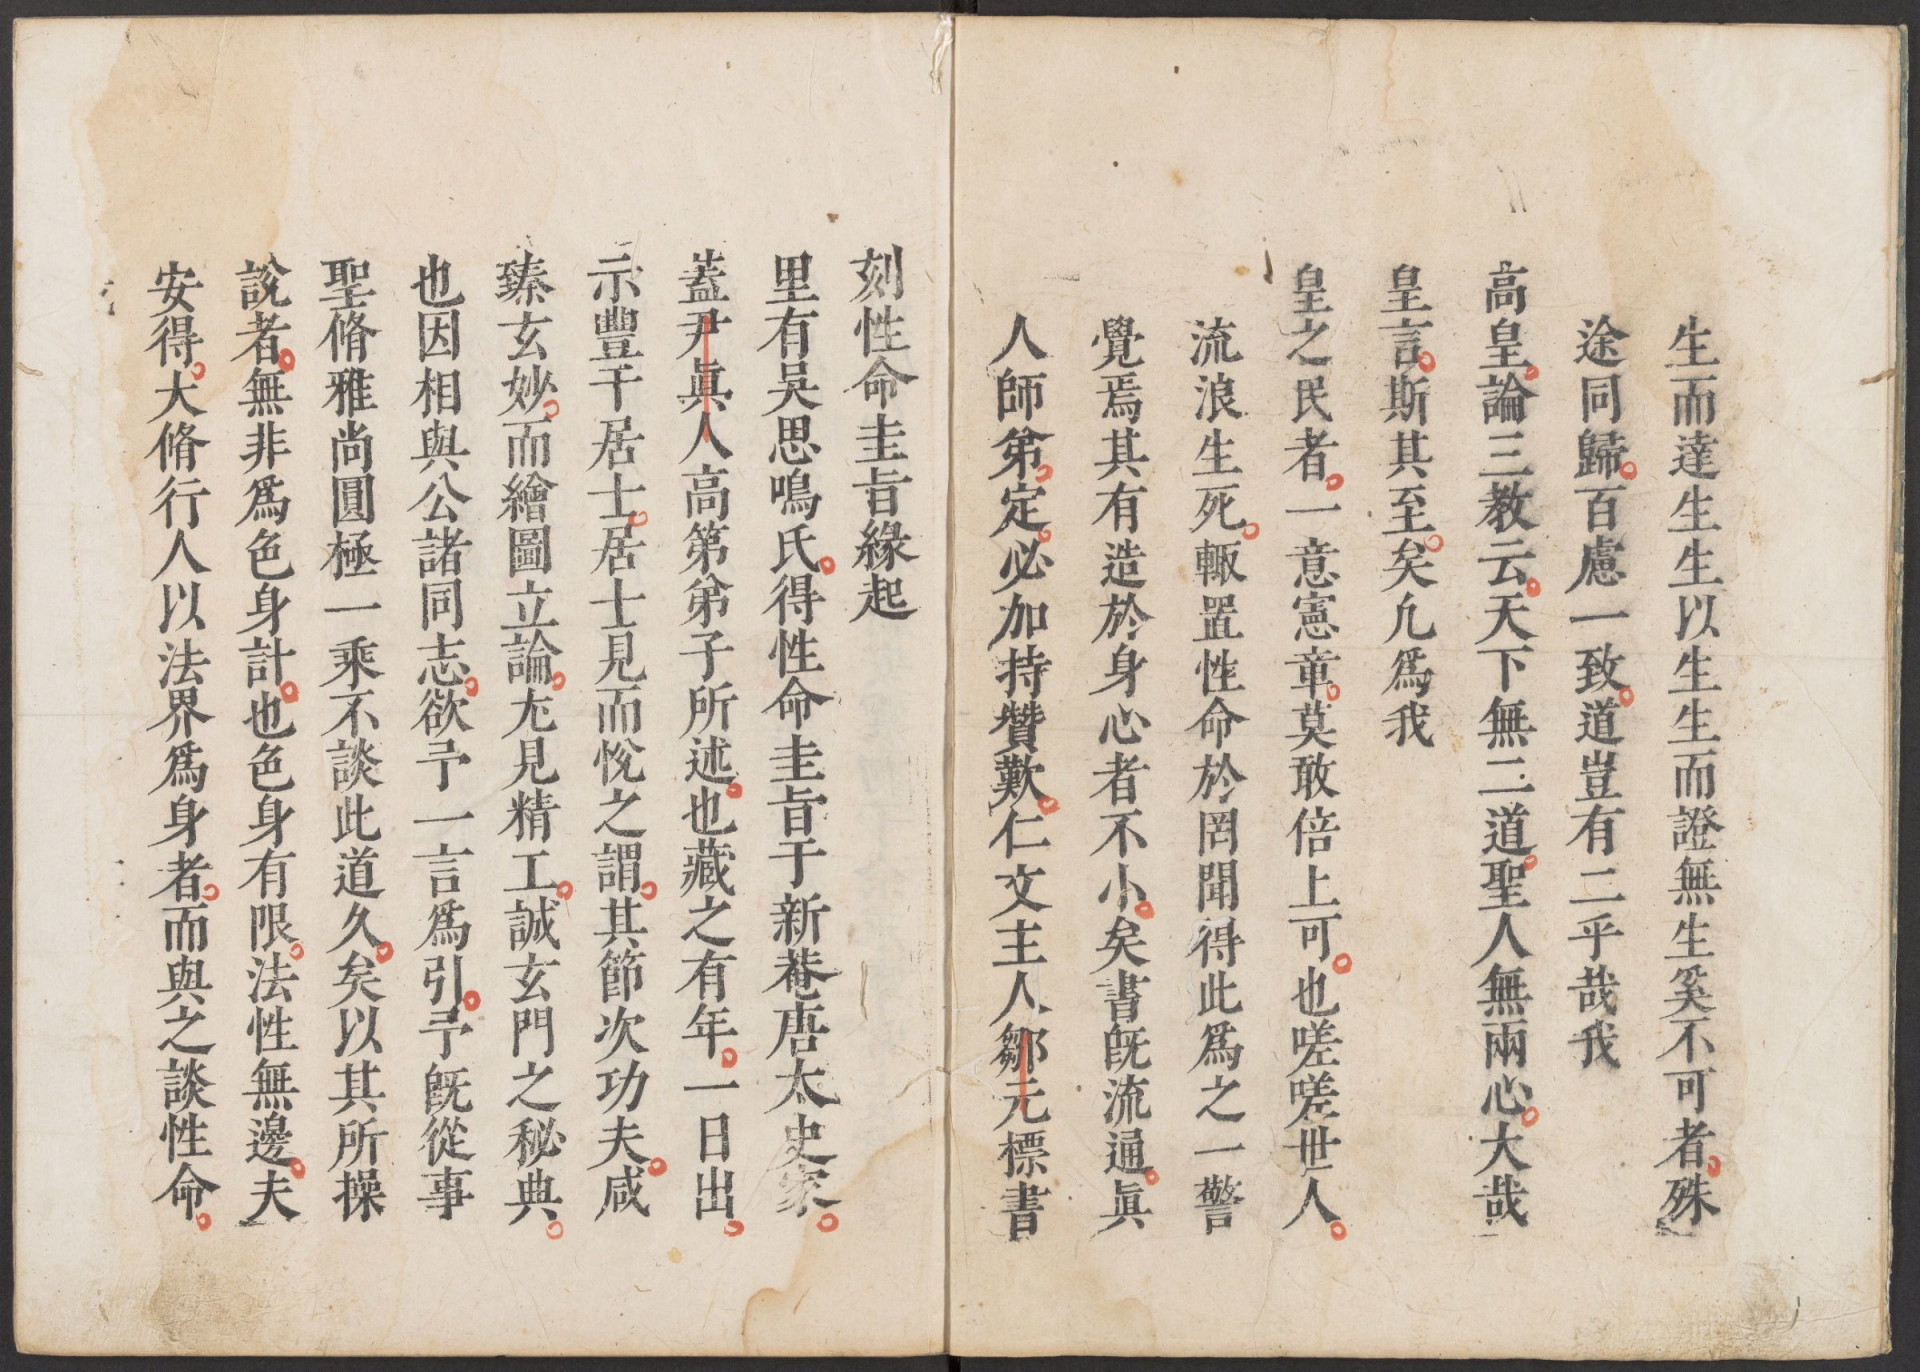 生而達生生以生生而證無生奚不可者殊
途同歸百慮一致道豈有二乎哉我
高皇論三教云天下無二道聖人無兩心大哉
皇言斯其至矣凢爲我
皇之民者一意憲章莫敢倍上可也嗟嗟世人
流浪生死輙置性命於罔聞得此爲之一警
覺焉其有造於身心者不小矣書旣流通眞
人師弟定必加持贊歎仁文主人鄒元標書
刻性命圭旨緣起
里有吳思鳴氏得性命圭旨于新菴唐太史家
蓋尹眞人高第弟子所述也藏之有年一日出
示豐干居士居士見而悅之謂其節次功夫咸
臻玄妙而繪圖立論尤見精工誠玄門之秘典
也因相與公諸同志欲予一言爲引予旣從事
聖脩雅尚圓極一乘不談此道久矣以其所操
說者無非爲色身計也色身有限法性無邊夫
安得大脩行人以法界爲身者而與之談性命